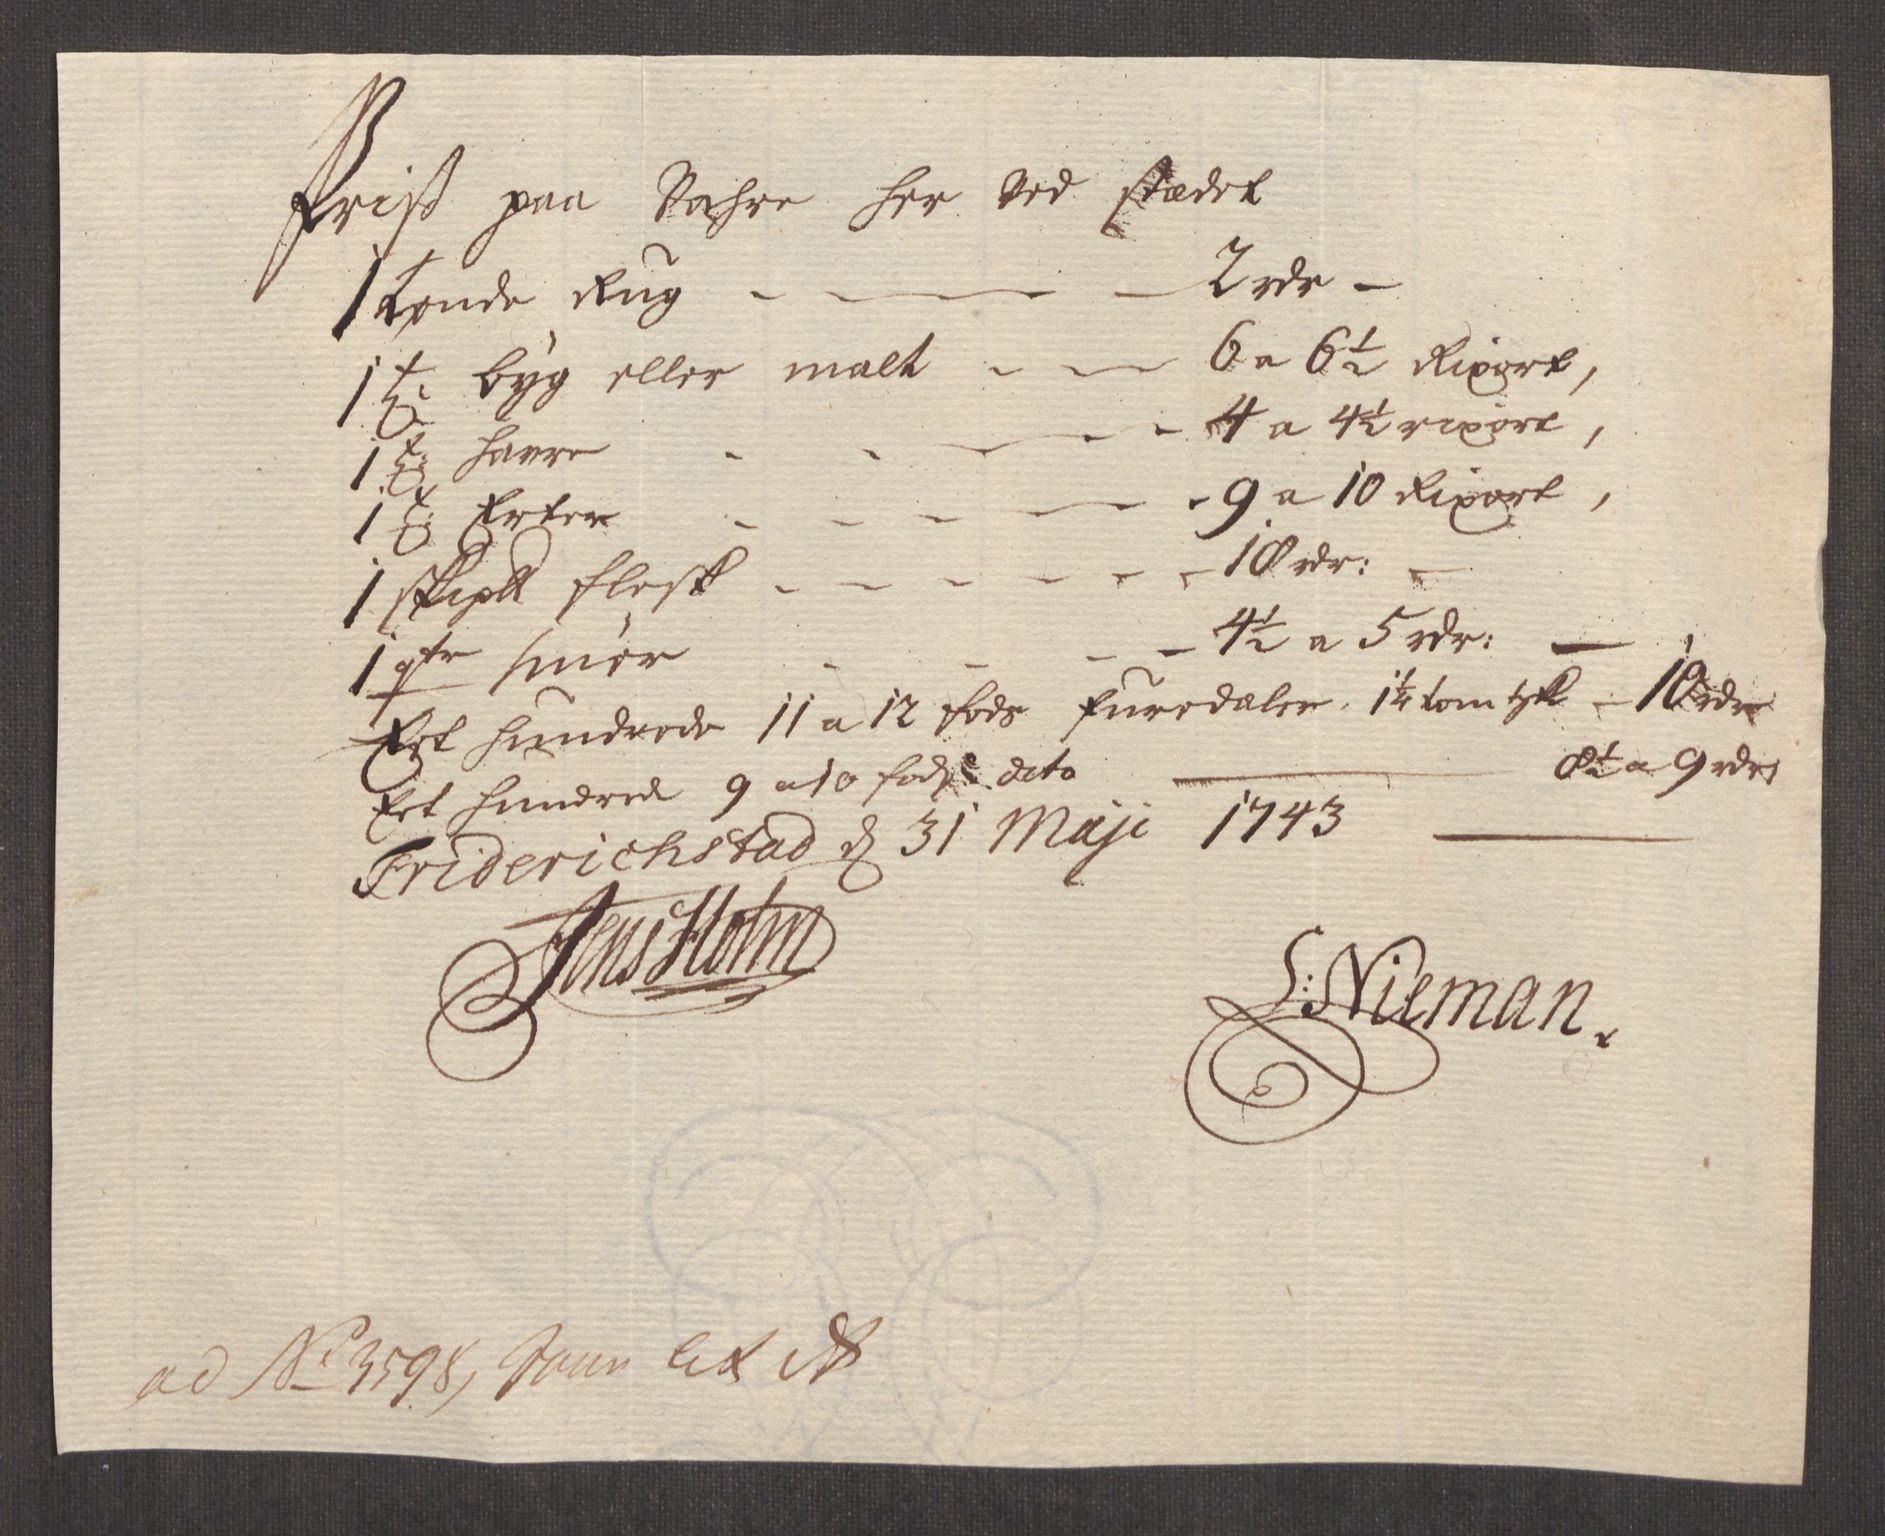 Priß paa Vahre her ved stædet
1 tønde Rug - - - 2 rdr -
1 t: byg eller malt - - 6 a 6½ Rixort,
1 t: havre - - - - - 4 a 4½ rixort,
1 t: Erter - - - - - 9 a 10 Rixort,
1 skip℔ flesk - - - - - - 10 rdr: -
1 qtr smör - - - - 4½ a 5 rdr: -
Eet hundrede 11 a 12 fods furedaler 1¼ tom tyk - 10 rdr
Eet hundrede 9 a 10 fods dito - 8½ a 9 rdr
Friderichstad d 31 Maji 1743
Jens Holm
S: Nieman.
ad No 3598, Lit